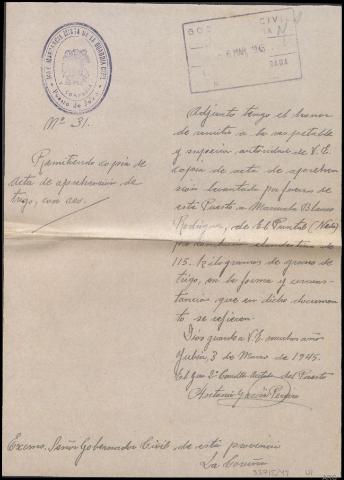 GUARDIA CIVIL
6 MAR. 1945
Nº 31.
Remitiendo copia de
acta de aprehensión de
trigo, con ceo.
Adjunto tengo el honor
de remitir a la respetable
y superior autoridad de V. E.
copia de acta de aprehen-
sión levantada por fuerza de
este Puesto, a Manuela Blanco
Rodríguez, de El Puntal (Neda)
por
115. kilogramos de grano de
trigo, en la forma y circuns-
tancias que en dicho documen-
to se refieren.
Dios guarde a V. E. muchos años
Jubia, 3 de Marzo de 1945.
El Gua 2º Comdte Acctal del Puesto
Antonio García
Excmo. Señor Gobernador Civil de esta provincia
La Coruña
33715/49